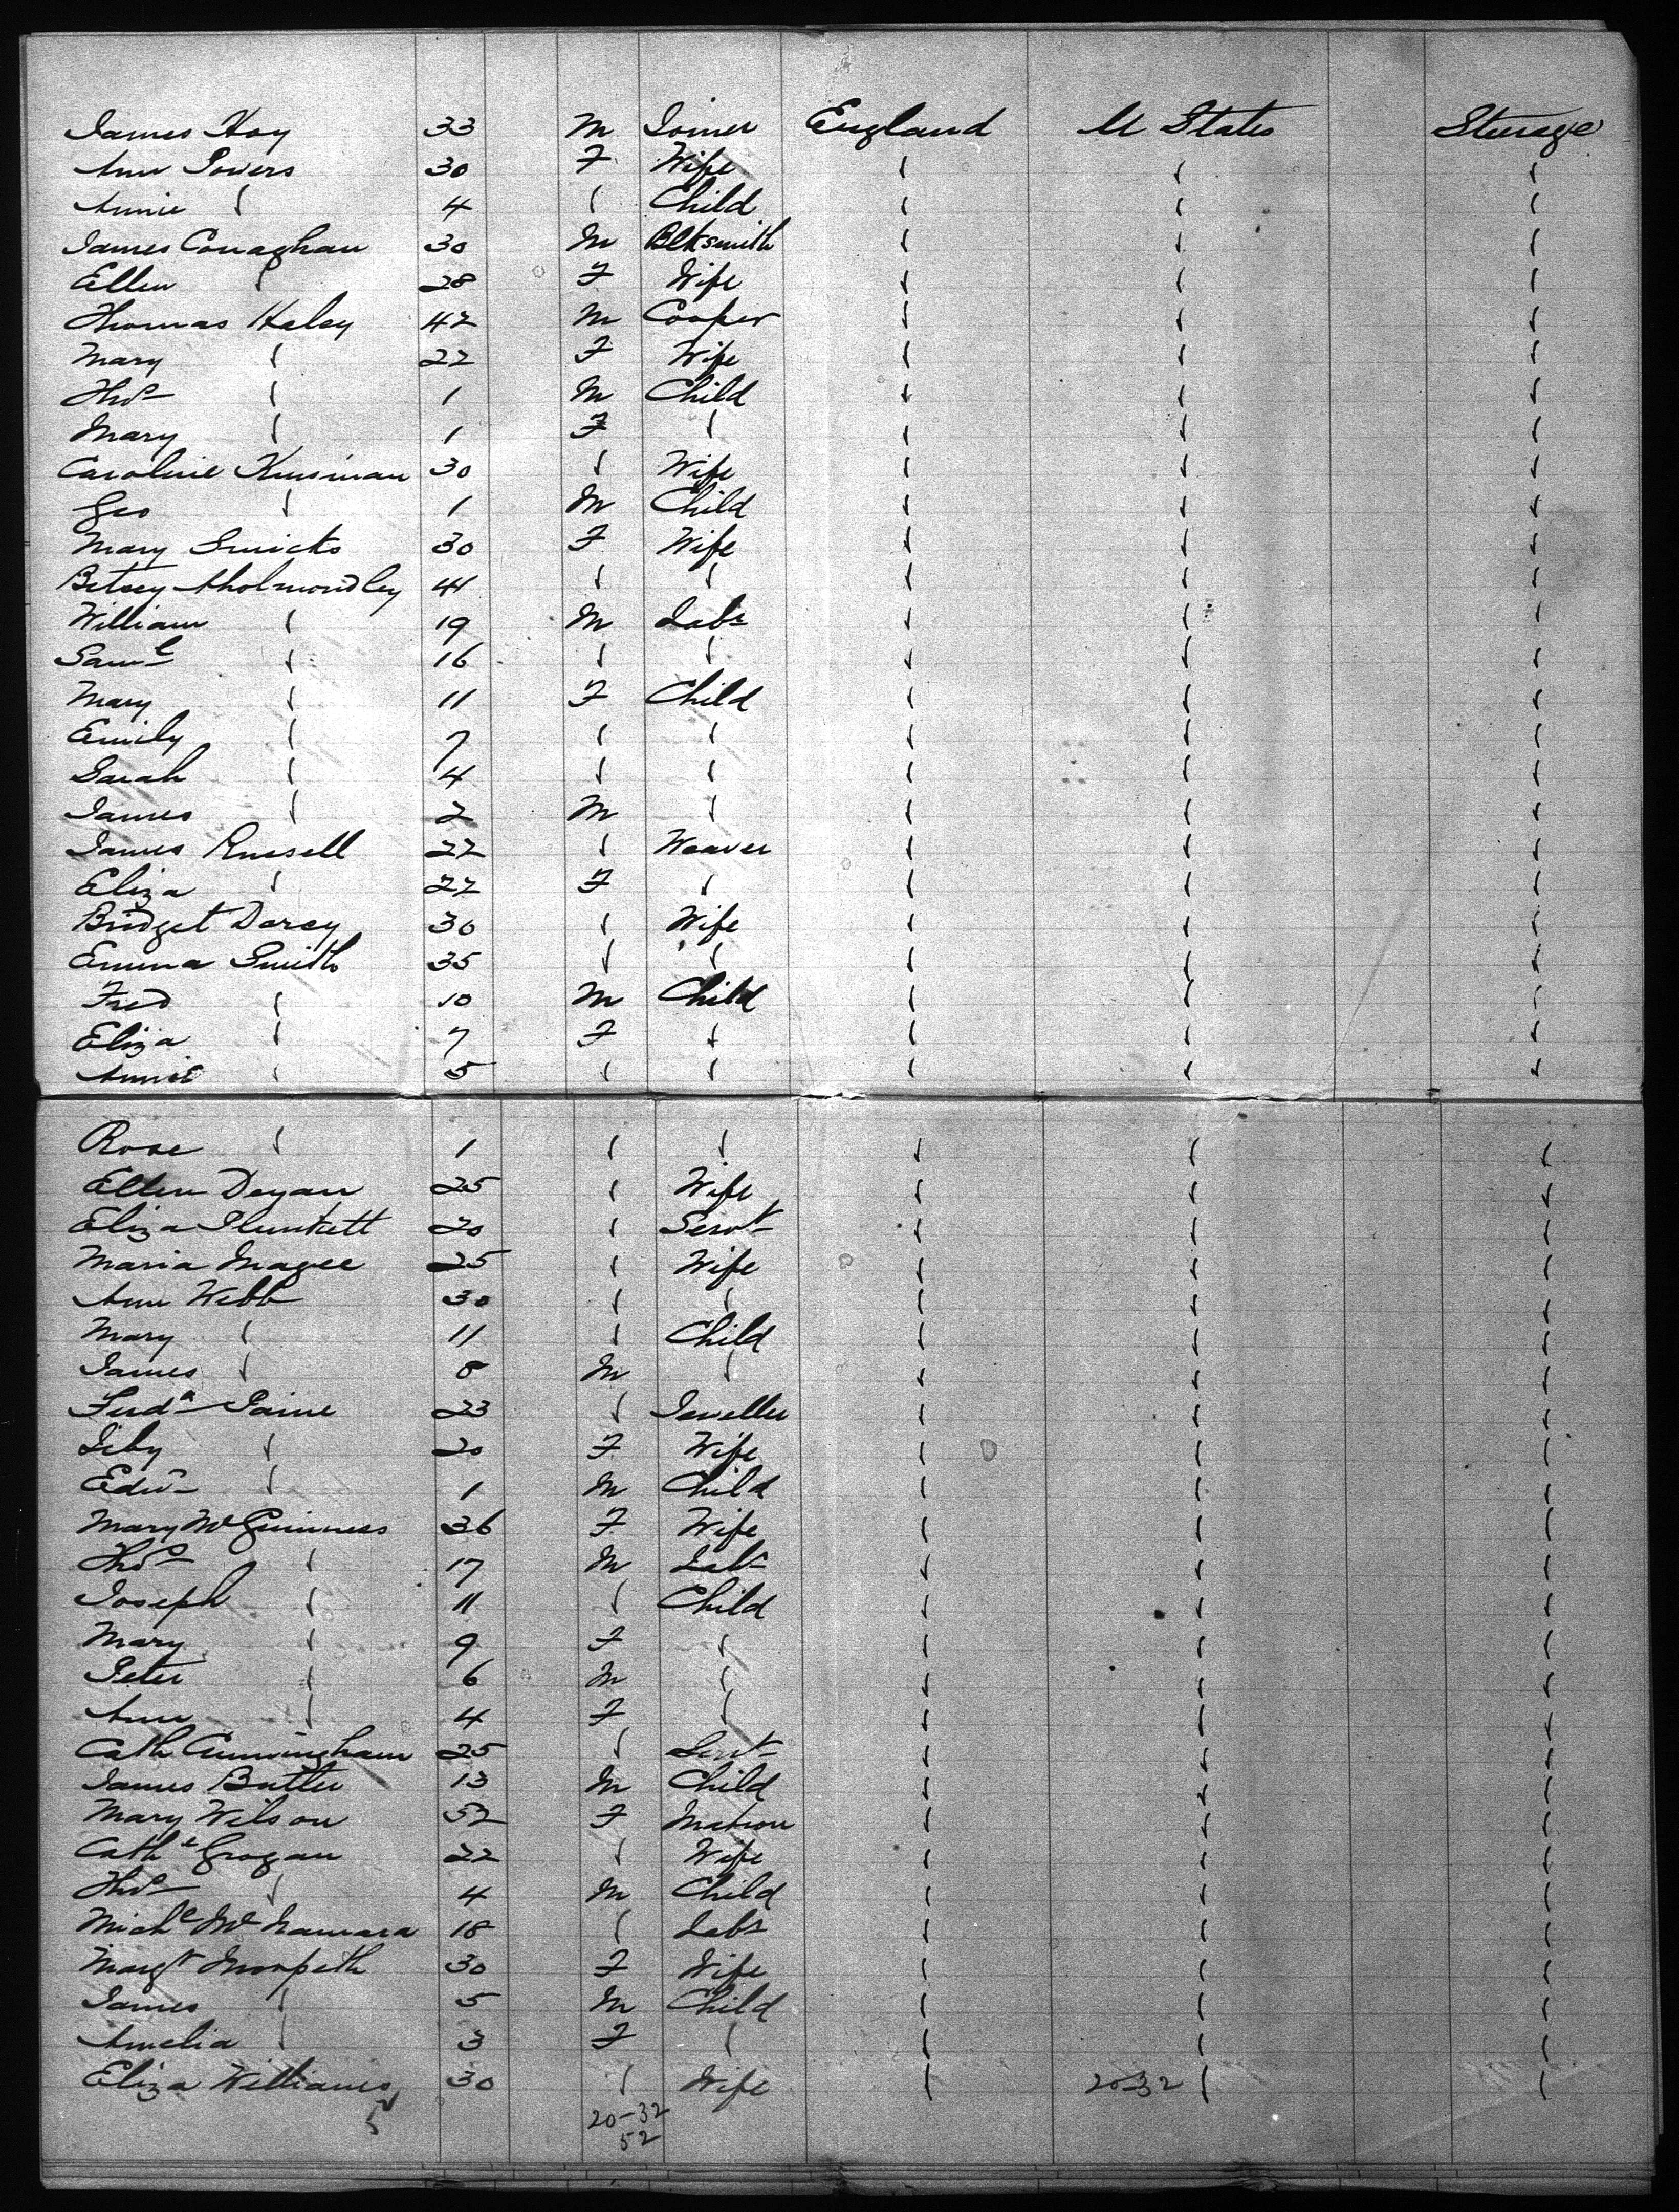 James Hoy 33 M Joiner England U States Steerage
Ann Powers 30 F Wife " " "
Annie " 4 " Child " " "
James Conaghan 30 M Blksmith " " "
Ellen " 28 F Wife " " "
Thomas Haley 42 M Cooper " " "
Mary " 22 F Wife " " "
Thos " 1 M Child " " "
Mary " 1 F " " " "
Caroline Kinsman 30 " Wife " " "
Geo " 1 M Child " " "
Mary Smicks 30 F Wife " " "
Betsey Cholmondley 41 " " " " "
William " 19 M Labr " " "
Saml " 16 " " " " "
Mary " 11 F Child " " "
Emily " 7 " " " " "
Sarah " 4 " " " " "
James " 2 M " " " "
James Russell 22 " Weaver " " "
Eliza " 22 F " " " "
Bridget Darcy 30 " Wife " " "
Emma Smith 35 " " " " "
Fred " 10 M Child " " "
Eliza " 7 F " " " "
Annie " 5 " " " " "
Rose " 1 " " " " "
Ellen Degan 25 " Wife " " "
Eliza Plunkett 20 " Servt " " "
Maria Magee 25 " Wife " " "
Ann Webb 30 " " " " "
Mary " 11 " Child " " "
James " 8 M " " " "
Ferda Paine 23 " Jeweller " " "
Liby " 20 F Wife " " "
Edw " 1 M Child " " "
Mary McGuinness 36 F Wife " " "
Thos " 17 M Labr " " "
Joseph " 11 " Child " " "
Mary " 9 F " " " "
Peter " 6 M " " " "
Ann " 4 F " " " "
Cath Cunningham 25 " Servt " " "
James Butler 13 M Child " " "
Mary Wilson 52 F Matron " " "
Cathe Grogan 22 " Wife " " "
Thos " 4 M Child " " "
Michl McNamara 18 " Labr " " "
Margt Morpeth 30 F Wife " " "
James " 5 M Child " " "
Amelia " 3 F " " " "
Eliza Williams 30 " Wife " 20-32 " "
20-32
52